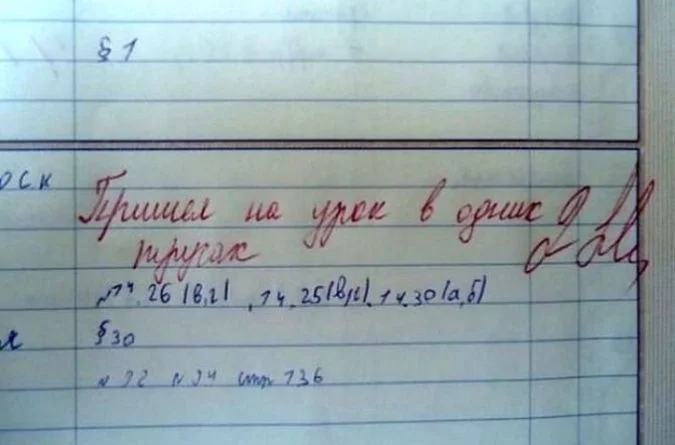 § 1
оск
Пришел на урок в одних 2
трусах
№14.26(в,г), 14.25(в,г), 14.30(а,б)
я
§ 30
№ 32 № 34 стр 136